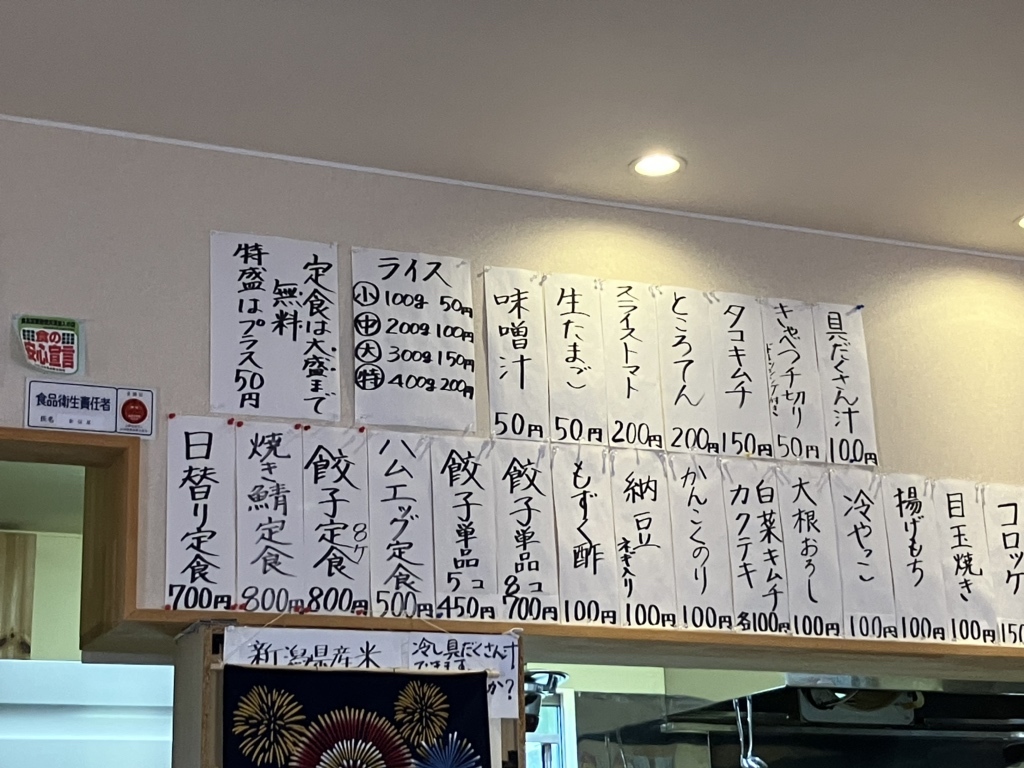 定食は大盛まで
無料
特盛はプラス50円
ライス
小 100g 50円
中 200g 100円
大 300g 150円
特 400g 200円
味噌汁 50円
生たまご 50円
スライストマト 200円
ところてん 200円
タコキムチ 150円
きゃべつ千切り
50円
具だくさん汁 100円
食の
安心宣言
食品衛生責任者
氏名
日替り定食 700円
焼き鯖定食 800円
餃子定食 8ケ 800円
ハムエッグ定食 500円
餃子単品 5コ 450円
餃子単品 8コ 700円
もずく酢 100円
納豆 ネギ入り 100円
かんこくのり 100円
白菜キムチ
カクテキ
各100円
大根おろし 100円
冷やっこ 100円
揚げもち 100円
目玉焼き 100円
コロッケ 150
新潟県産米
冷し具だくさん汁
できます
か?